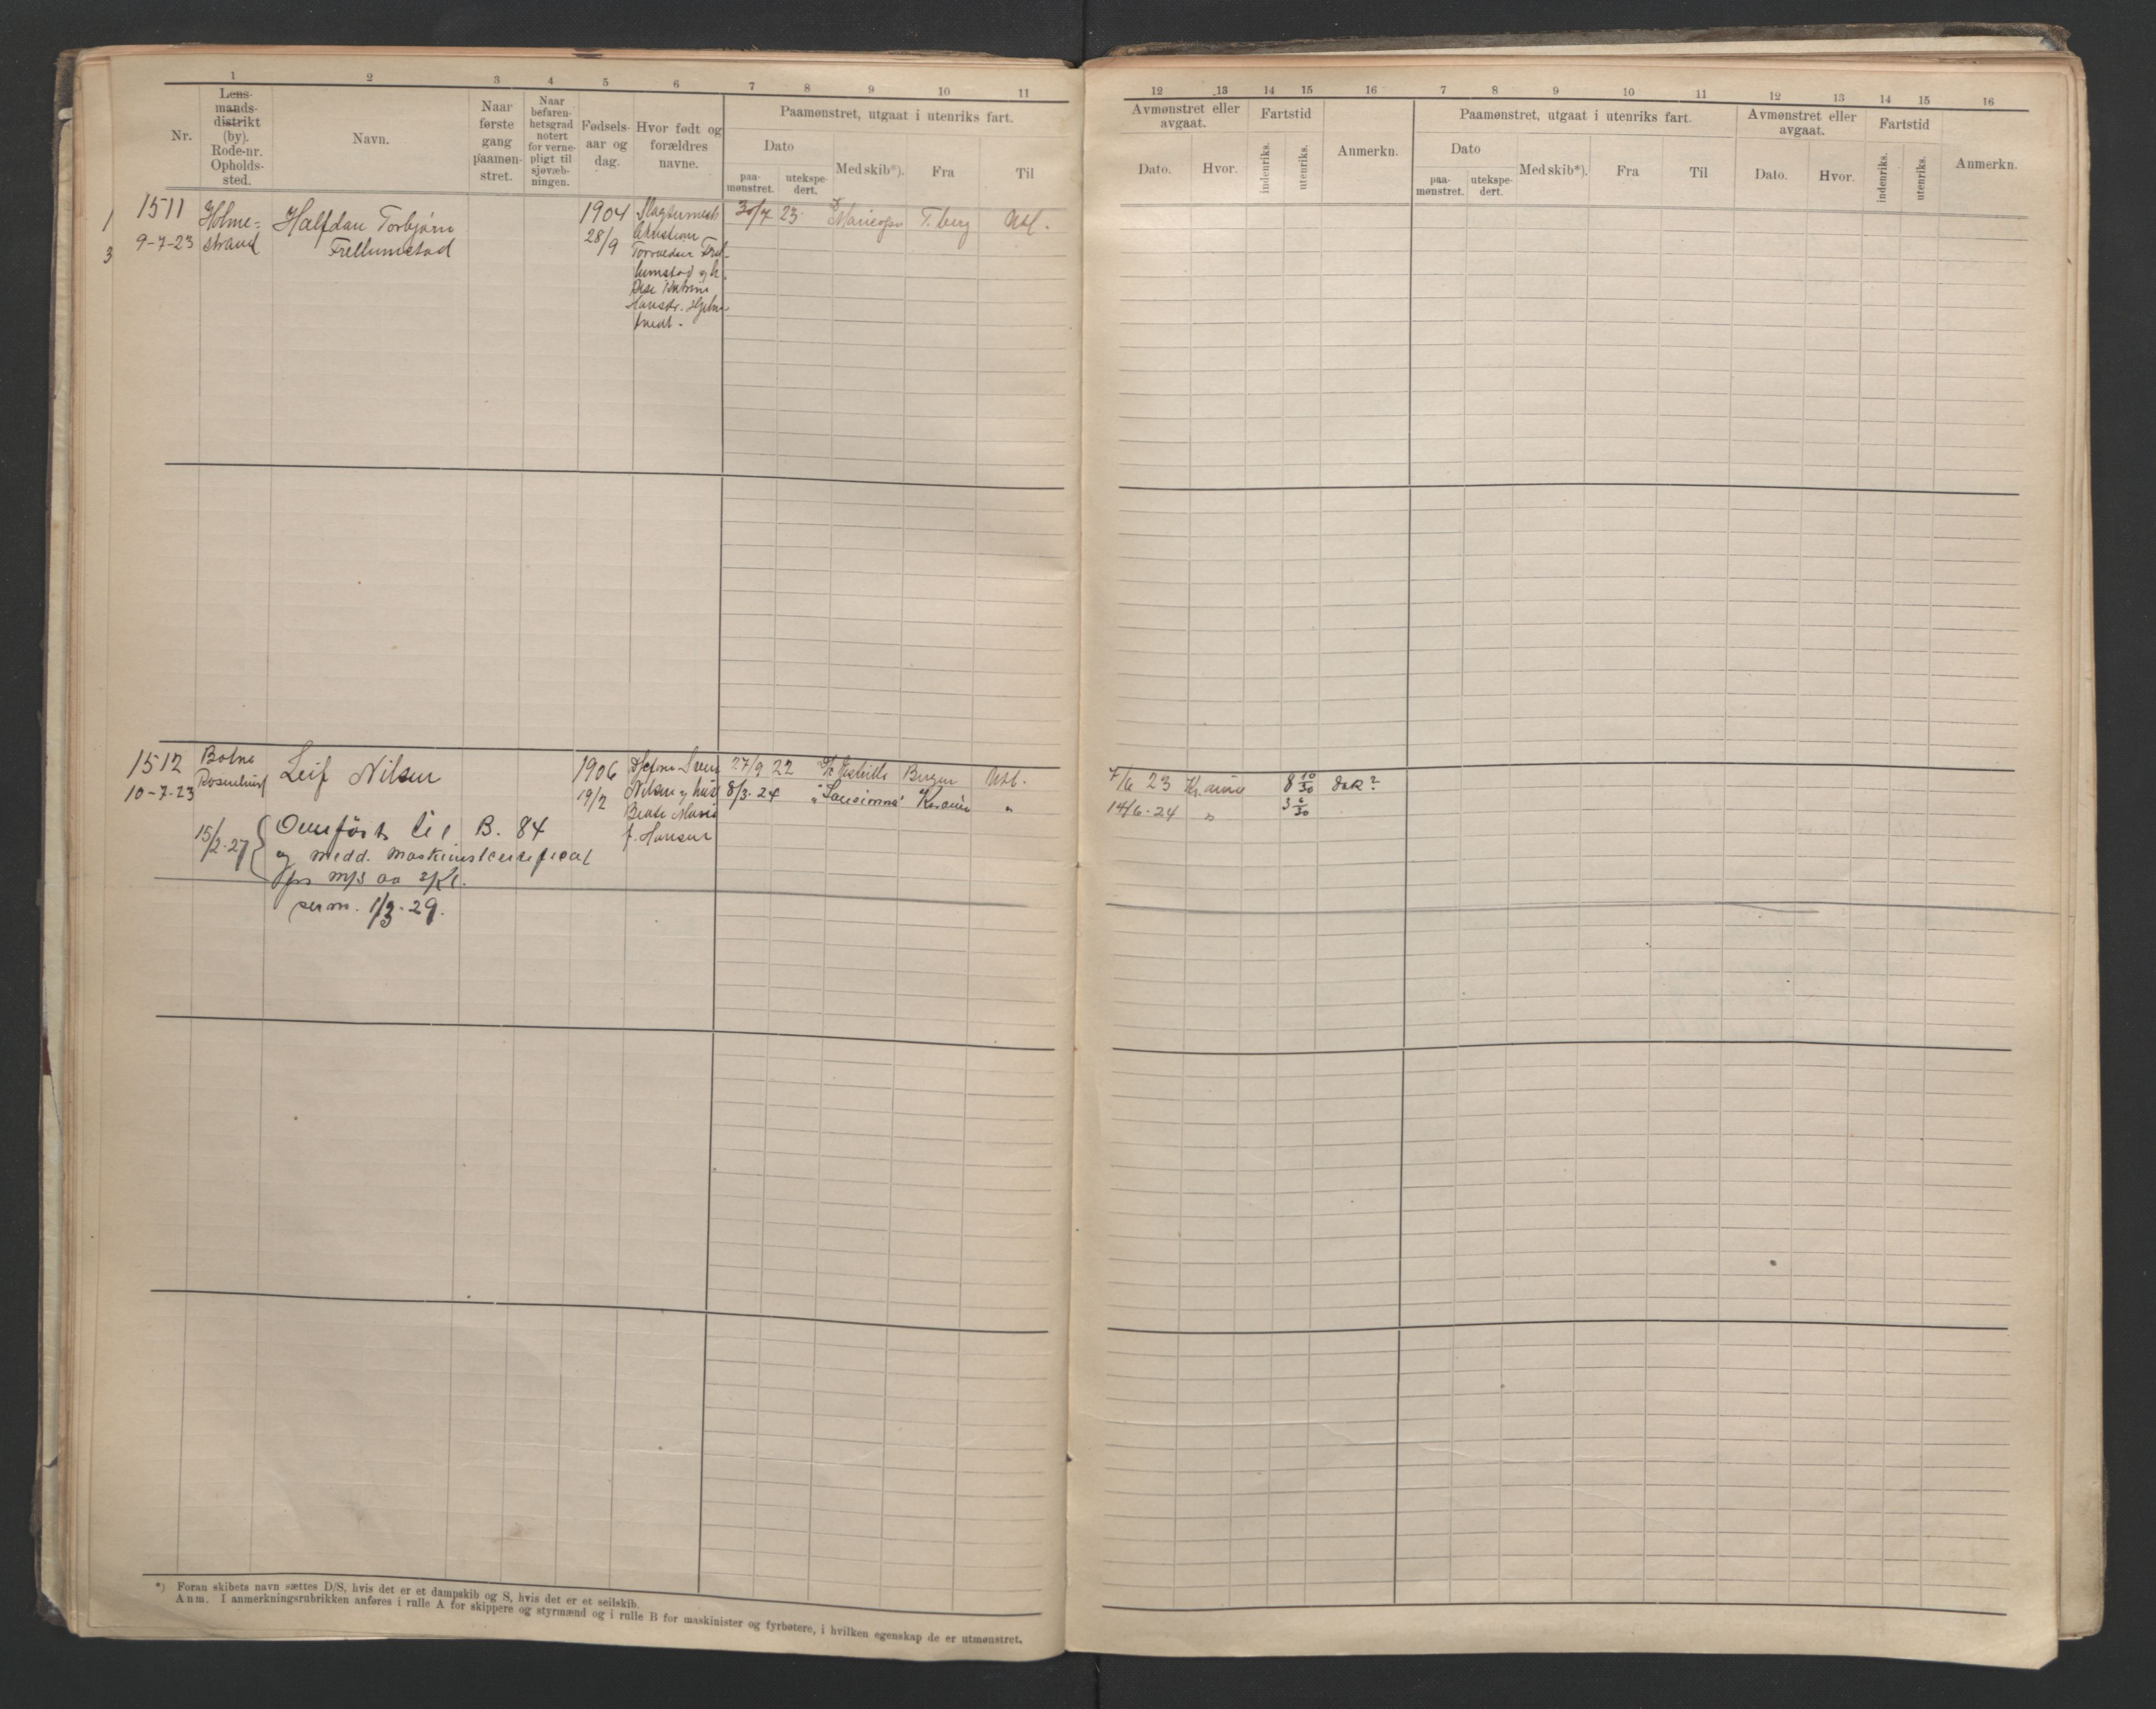 1 2 3 4 5 6 7 8 9 10 11
Nr.
Lens-
mands-
distrikt
(by).
Rode-nr.
Opholds-
sted.
Navn.
Naar
første
gang
paamøn-
stret.
Naar
befaren-
hetsgrad
notert
for verne-
pligt til
sjøvæb-
ningen.
Fødsels-
aar og
dag.
Hvor født og
forældres
navne.
Paamønstret, utgaat i utenriks fart.
Dato
paa-
mønstret.
utekspe-
dert.
Med skib*).
Fra
Til
12 13 14 15 16 7 8 9 10 11 12 13 14 15 16
Avmønstret eller
avgaat.
Dato.
Hvor.
Fartstid
indenriks.
utenriks.
Anmerkn.
Paamønstret, utgaat i utenriks fart.
Dato
paa-
mønstret.
utekspe-
dert.
Med skib*).
Fra
Til
Avmønstret eller
avgaat.
Dato.
Hvor.
Fartstid
indenriks.
utenriks.
Anmerkn.
1
3
1511
9-7-23
Holme-
strand
Halfdan Torbjørn
Frellumstad
1904
28/9
Slagtermest
Torvaldsen Frel-
lumstad og h.
30/7 23
T.berg
Utl.
1512
10-7-23
Botne
Leif Nilsen
1906
19/2
Nilsen og hus
Beate Marie
f. Hansen
27/9 22
Bergen
Utl.
8/3-24
Kr.ania
"
7/6 23 Kr.ania 8 10/30 dæk?
14/6-24 " 3 6/30
15/2-27
Overført til B. 84
og medd. maskinistcertifical
for m/s av 2/Kl.
perm. 1/3-29.
*) Foran skibets navn sættes D/S, hvis det er et dampskib og S, hvis det er et seilskib.
Anm. I anmerkningsrubrikken anføres i rulle A for skippere og styrmænd og i rulle B for maskinister og fyrbøtere, i hvilken egenskap de er utmønstret.